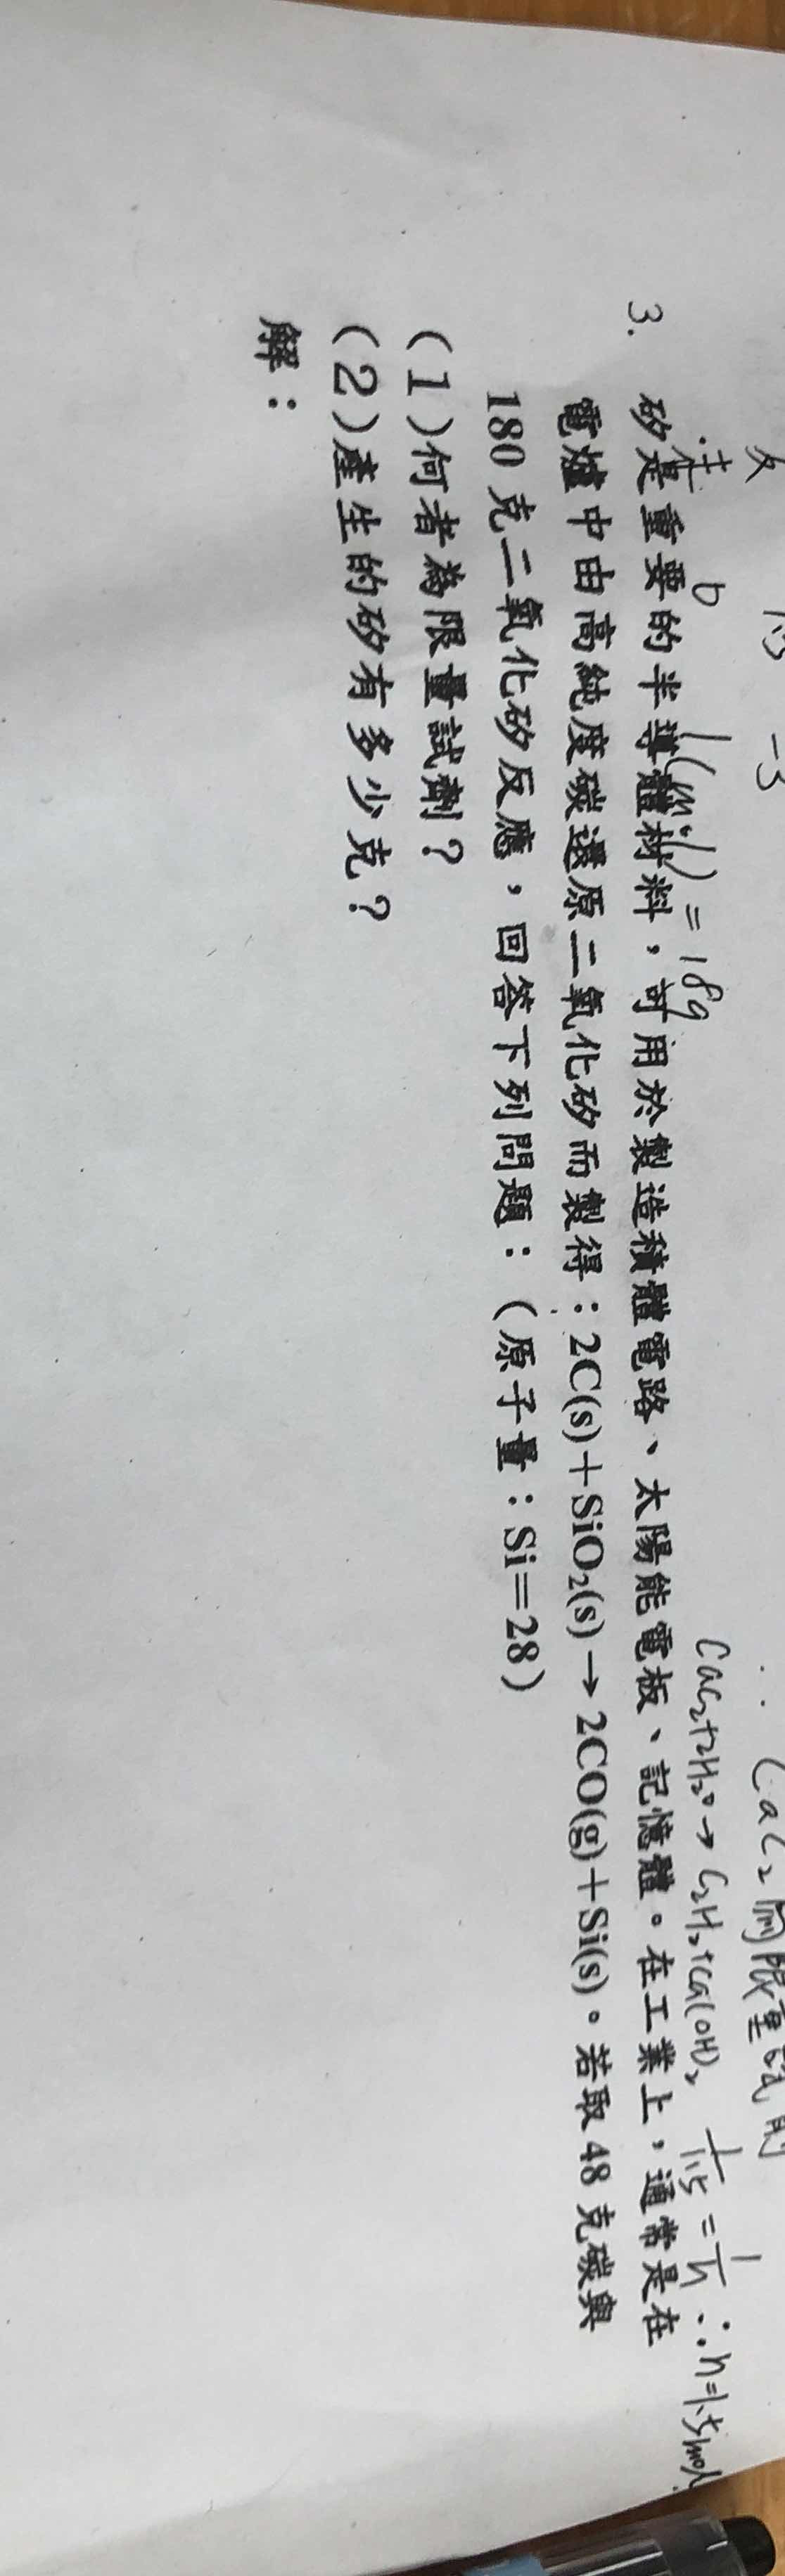 1(mol) = 18g
CaC₂限量試劑
CaC₂+2H₂O→C₂H₂+Ca(OH)₂ 1/1.5 = 1/n ∴n=1.5mol
3. 矽是重要的半導體材料，可用於製造積體電路、太陽能電板、記憶體。在工業上，通常是在
電爐中由高純度碳還原二氧化矽而製得：2C(s)＋SiO₂(s)→2CO(g)＋Si(s)。若取 48 克碳與
180 克二氧化矽反應，回答下列問題：（原子量：Si＝28）
（1）何者為限量試劑？
（2）產生的矽有多少克？
解：